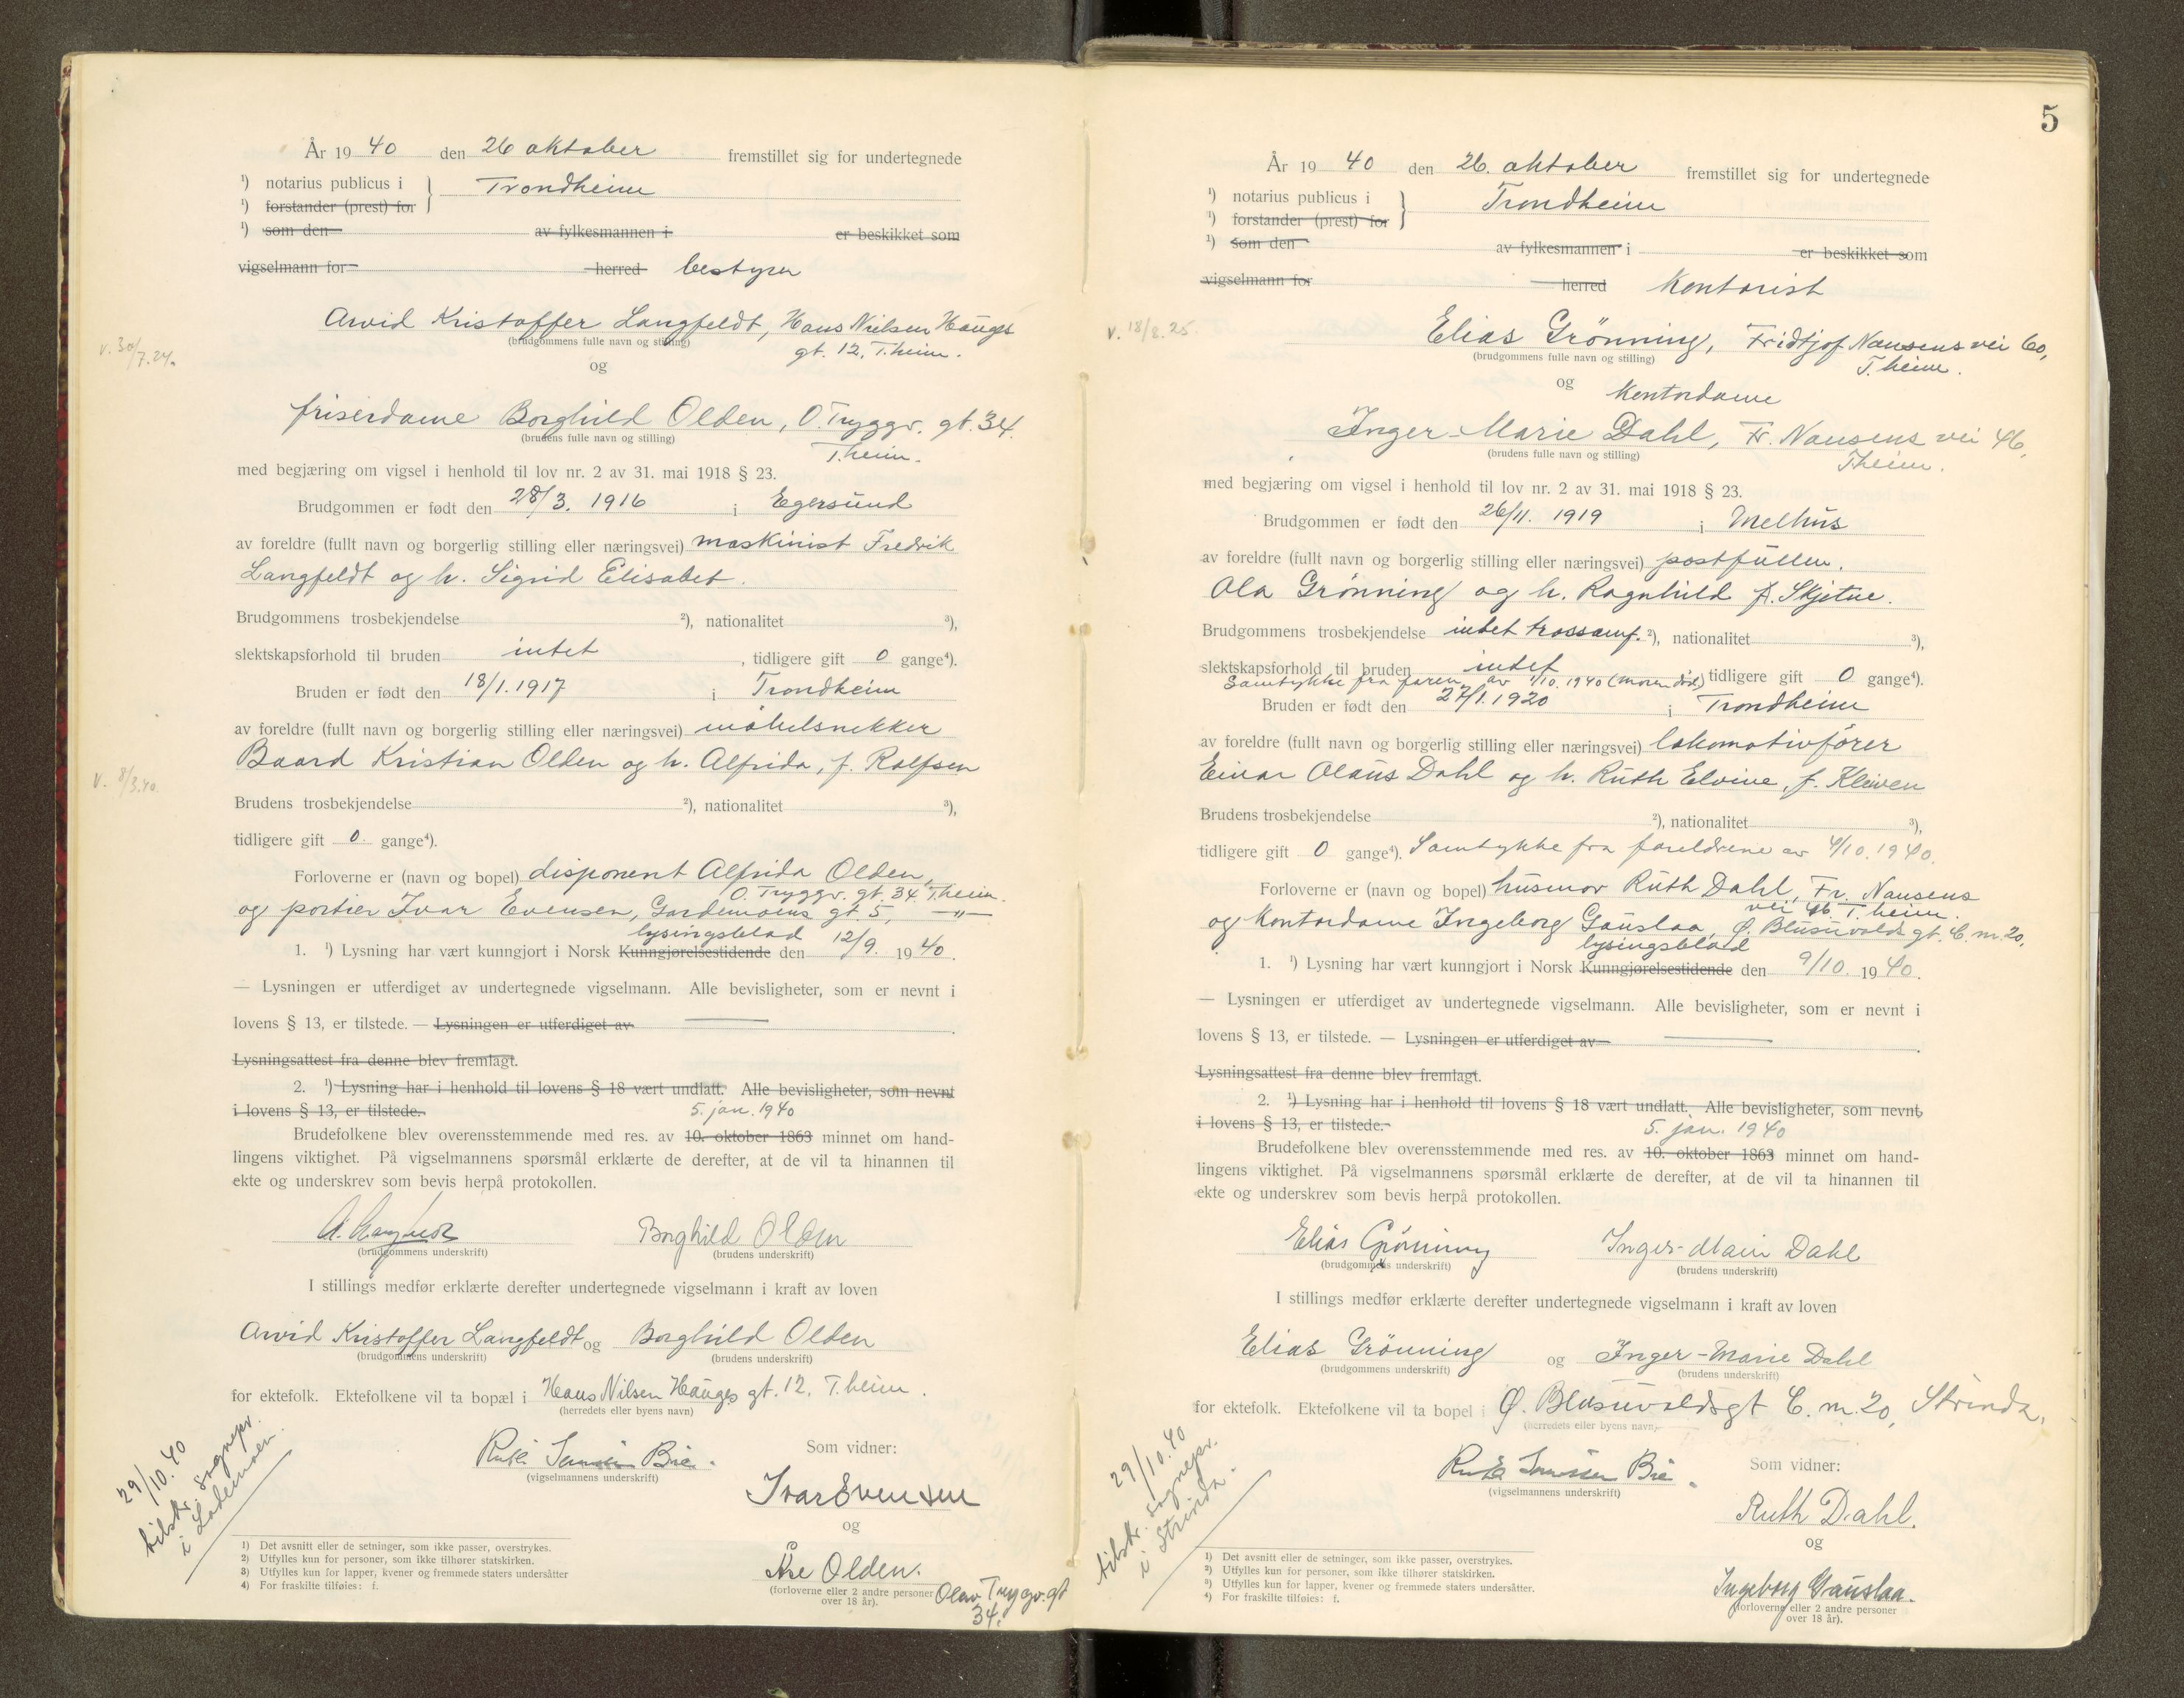 År 1940 den 26 oktober fremstillet sig for undertegnede
¹) notarius publicus i } Trondheim
¹) forstander (prest) for
¹) som den av fylkesmannen i er beskikket som
vigselmann for herred bestyrer
Arvid Kristoffer Langfeldt, Hans Nielsen Hauges
(brudgommens fulle navn og stilling) gt. 12, T.heim.
v. 30/7.24.
og
friserdame Borghild Olden, O. Tryggv. gt. 34.
(brudens fulle navn og stilling) T.heim.
med begjæring om vigsel i henhold til lov nr. 2 av 31. mai 1918 § 23.
Brudgommen er født den 28/3. 1916 i Egersund
av foreldre (fullt navn og borgerlig stilling eller næringsvei) maskinist Fredrik
Langfeldt og h. Sigrid Elisabet.
Brudgommens trosbekjendelse ²), nationalitet ³),
slektskapsforhold til bruden intet, tidligere gift 0 gange⁴).
Bruden er født den 18/1. 1917 i Trondheim
av foreldre (fullt navn og borgerlig stilling eller næringsvei) møbelsnekker
Baard Kristian Olden og h. Alfrida, f. Rolfsen
v. 8/3.40
Brudens trosbekjendelse ²), nationalitet ³),
tidligere gift 0. gange⁴).
Forloverne er (navn og bopel) disponent Alfrida Olden,
O. Tryggv. gt. 34 T.heim.
og portier Ivar Evensen, Gardemoens gt. 5, —"—
lysingsblad
1. ¹) Lysning har vært kunngjort i Norsk Kunngjørelsestidende den 12/9. 1940.
— Lysningen er utferdiget av undertegnede vigselmann. Alle bevisligheter, som er nevnt i
lovens § 13, er tilstede. — Lysningen er utferdiget av
Lysningsattest fra denne blev fremlagt.
2. ¹) Lysning har i henhold til lovens § 18 vært undlatt. Alle bevisligheter, som nevnt
i lovens § 13, er tilstede. 5. jan. 1940
Brudefolkene blev overensstemmende med res. av 10. oktober 1863 minnet om hand-
lingens viktighet. På vigselmannens spørsmål erklærte de derefter, at de vil ta hinannen til
ekte og underskrev som bevis herpå protokollen.
A. Langfeldt Borghild Olden
(brudgommens underskrift) (brudens underskrift)
I stillings medfør erklærte derefter undertegnede vigselmann i kraft av loven
Arvid Kristoffer Langfeldt og Borghild Olden
(brudgommens underskrift) (brudens underskrift)
for ektefolk. Ektefolkene vil ta bopæl i Hans Nilsen Hauges gt. 12. T.heim.
(herredets eller byens navn)
29/10.40
tilstr. sognepr.
i Lademoen.
Bie. Som vidner:
(vigselmannens underskrift)
Ivar Evensen
og
Åse Olden.
(forloverne eller 2 andre personer Olav Tryggv. gt
over 18 år). 34.
¹) Det avsnitt eller de setninger, som ikke passer, overstrykes.
²) Utfylles kun for personer, som ikke tilhører statskirken.
³) Utfylles kun for lapper, kvener og fremmede staters undersåtter
⁴) For fraskilte tilføies: f.
5
År 1940 den 26. oktober fremstillet sig for undertegnede
¹) notarius publicus i } Trondheim
¹) forstander (prest) for
¹) som den av fylkesmannen i er beskikket som
vigselmann for herred Kontorist
v. 18/2.25.
Elias Grönning, Fridtjof Nansens vei 60,
(brudgommens fulle navn og stilling) T.heim.
og Kontordame
Inger-Marie Dahl, Fr. Nansens vei 46,
(brudens fulle navn og stilling) T.heim.
med begjæring om vigsel i henhold til lov nr. 2 av 31. mai 1918 § 23.
Brudgommen er født den 26/11. 1919 i Melhus
av foreldre (fullt navn og borgerlig stilling eller næringsvei) postfullm.
Ola Grønning og h. Ragnhild f. Skjetne.
Brudgommens trosbekjendelse intet trossamf. ²), nationalitet ³),
slektskapsforhold til bruden intet, tidligere gift 0 gange⁴).
Samtykke fra faren av 1/10. 1940 (moren død)
Bruden er født den 27/1. 1920 i Trondheim
av foreldre (fullt navn og borgerlig stilling eller næringsvei) lokomotivfører
Einar Olaus Dahl og h. Ruth Elvine, f. Kleiven
Brudens trosbekjendelse ²), nationalitet ³),
tidligere gift 0 gange⁴). Samtykke fra foreldrene av 4/10. 1940.
Forloverne er (navn og bopel) husmor Ruth Dahl, Fr. Nansens
vei 46. T.heim.
og Kontordame Ingeborg Gauslaa, Ø. Blusuvolds gt. C. m. 20,
lysingsblad
1. ¹) Lysning har vært kunngjort i Norsk Kunngjørelsestidende den 9/10. 1940.
— Lysningen er utferdiget av undertegnede vigselmann. Alle bevisligheter, som er nevnt i
lovens § 13, er tilstede. — Lysningen er utferdiget av
Lysningsattest fra denne blev fremlagt.
2. ¹) Lysning har i henhold til lovens § 18 vært undlatt. Alle bevisligheter, som nevnt,
i lovens § 13, er tilstede. 5. jan. 1940
Brudefolkene blev overensstemmende med res. av 10. oktober 1863 minnet om hand-
lingens viktighet. På vigselmannens spørsmål erklærte de derefter, at de vil ta hinannen til
ekte og underskrev som bevis herpå protokollen.
Elias Grönning Inger-Marie Dahl
(brudgommens underskrift) (brudens underskrift)
I stillings medfør erklærte derefter undertegnede vigselmann i kraft av loven
Elias Grönning og Inger-Marie Dahl
(brudgommens underskrift) (brudens underskrift)
for ektefolk. Ektefolkene vil ta bopel i Ø. Blusuvoldsgt C. m. 20, Strinda.
(herredets eller byens navn)
29/10.40
tilstr. sognepr.
i Strinda.
Bie. Som vidner:
(vigselmannens underskrift)
Ruth Dahl.
og
Ingeborg Gauslaa.
(forloverne eller 2 andre personer
over 18 år).
¹) Det avsnitt eller de setninger, som ikke passer, overstrykes.
²) Utfylles kun for personer, som ikke tilhører statskirken.
³) Utfylles kun for lapper, kvener og fremmede staters undersåtter.
⁴) For fraskilte tilføies: f.